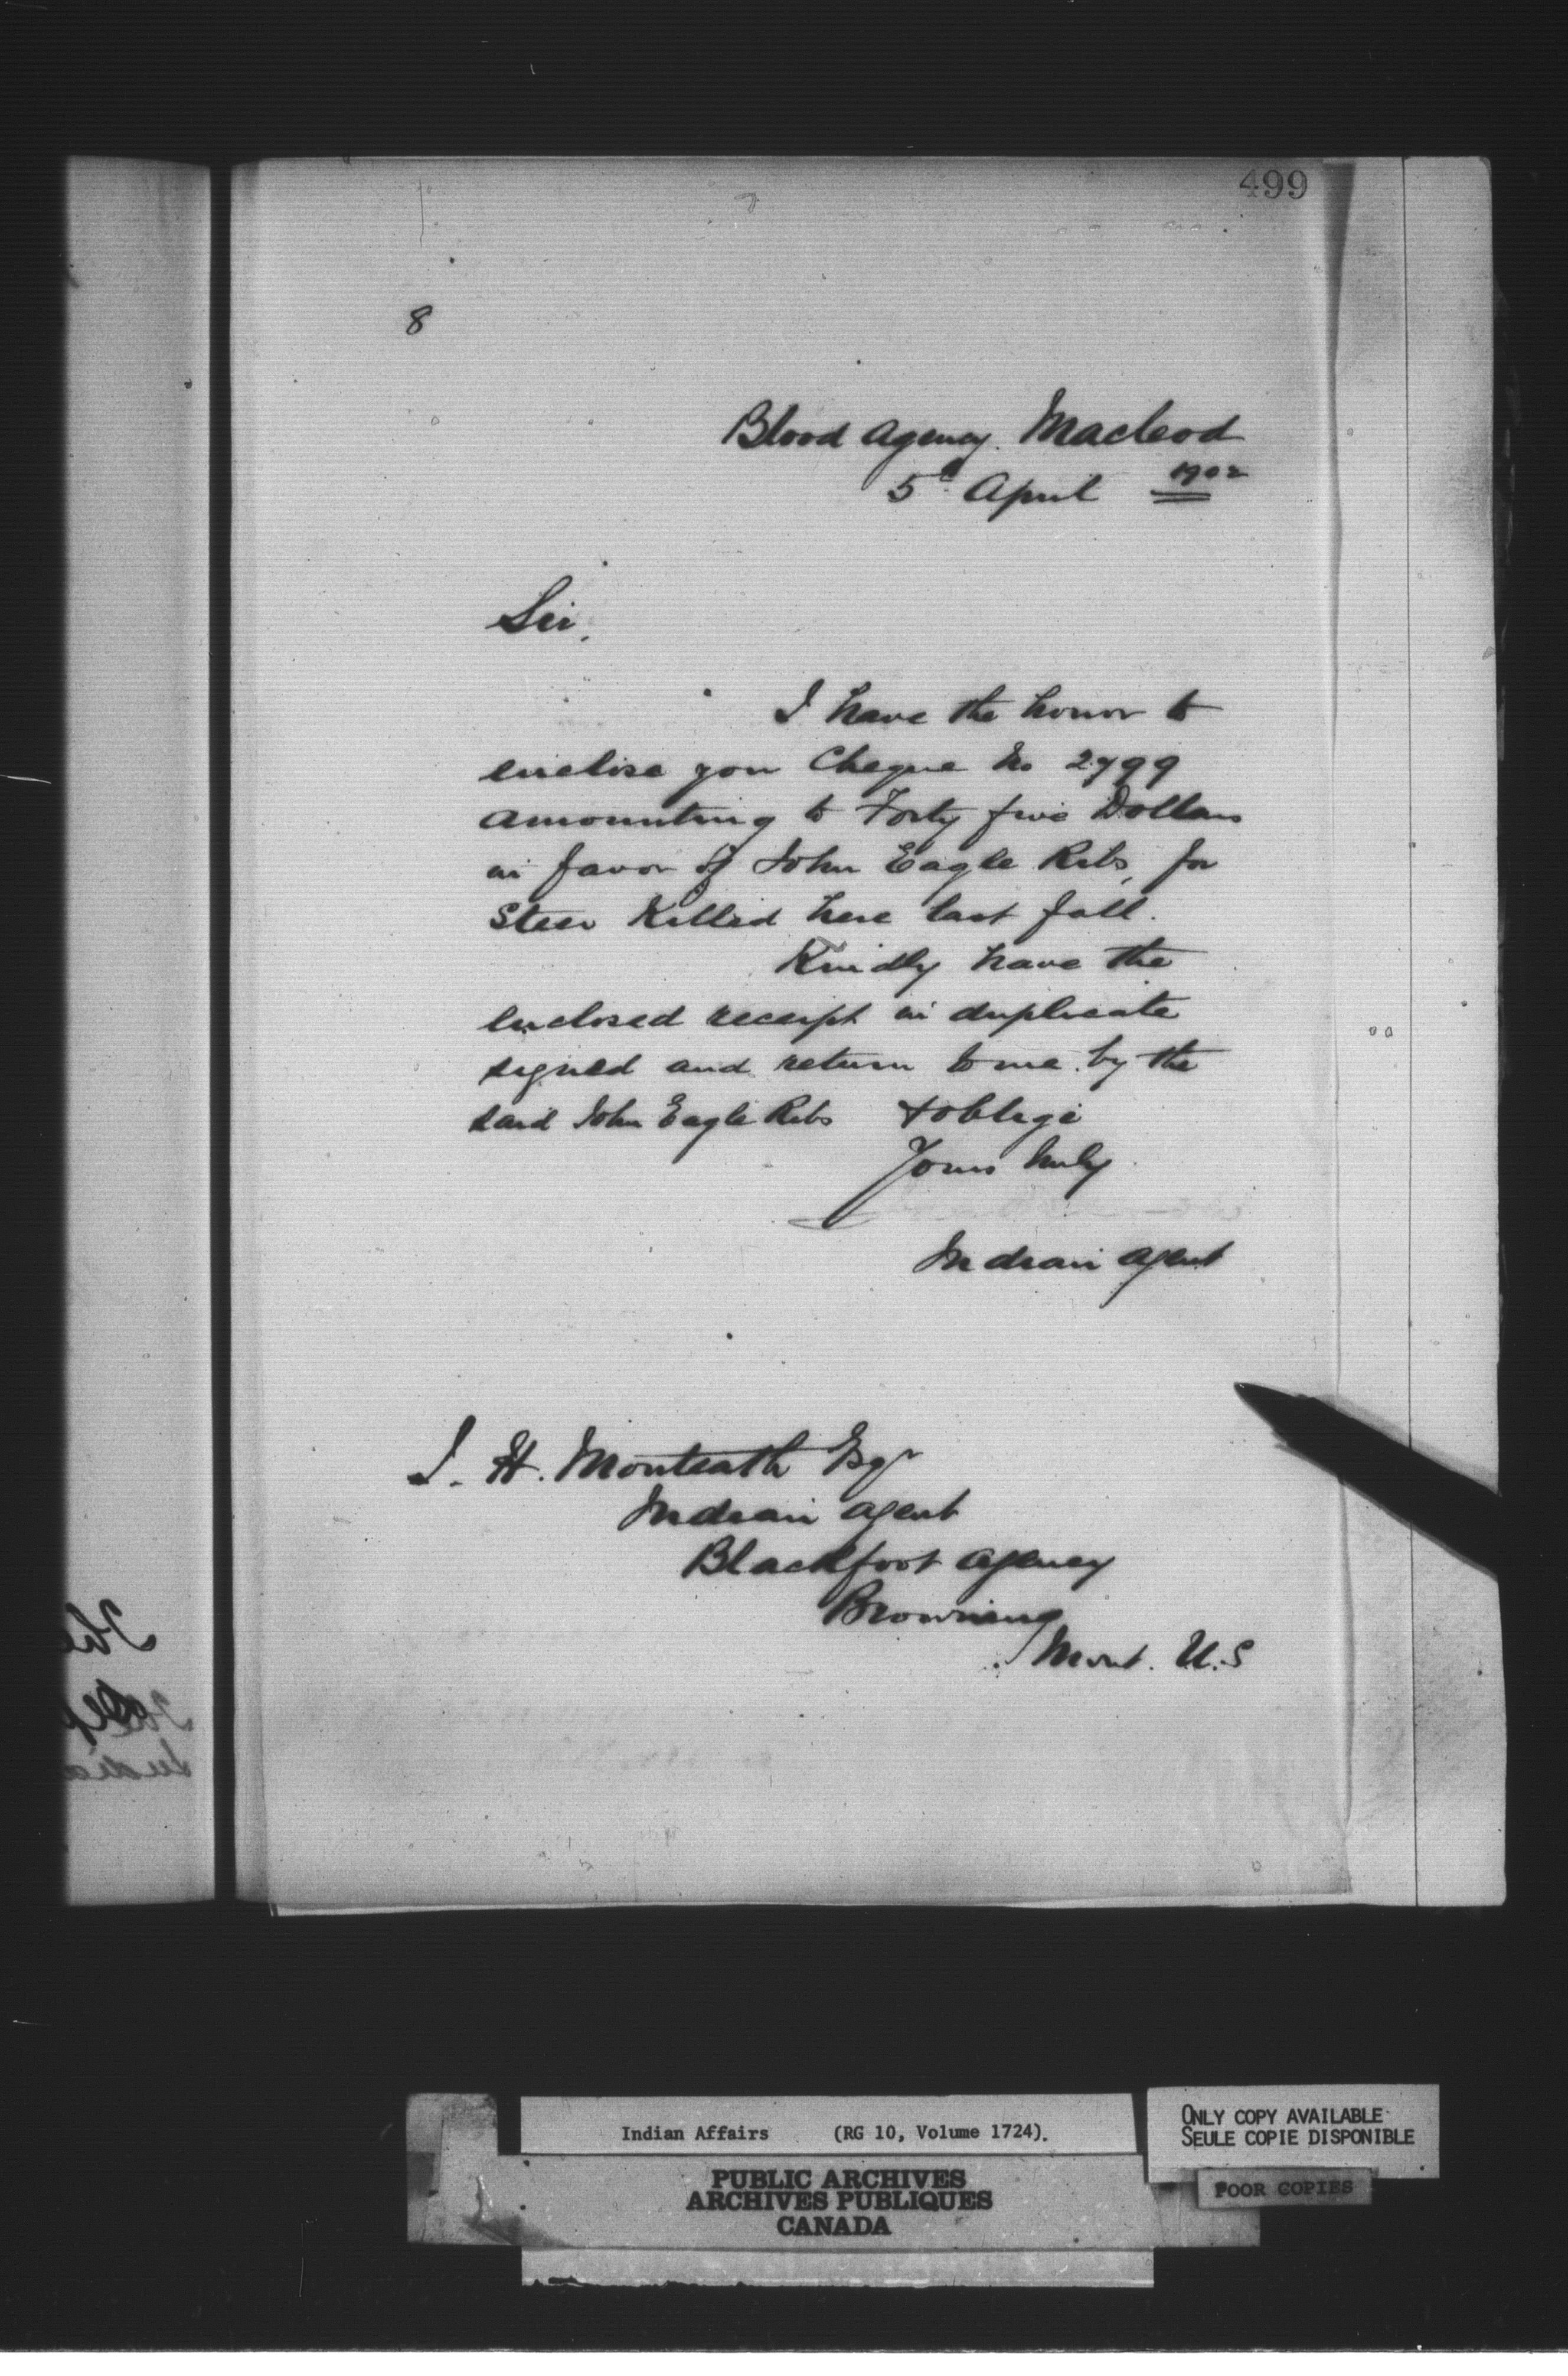 499
8
Blood Agency. Macleod
5th April 1902
Sir,
I have the honor to
enclose you Cheque No 2799
amounting to Forty five Dollars
in favor of John Eagle Ribs, for
Steer Killed here last fall.
Kindly have the
enclosed receipt in duplicate
signed and return to me by the
said John Eagle Ribs & oblige
Yours truly
Indian Agent
J. H. Monteath Esqr
Indian Agent
Blackfoot Agency
Browning
Mont. U.S
Indian Affairs (RG 10, Volume 1724).
PUBLIC ARCHIVES
ARCHIVES PUBLIQUES
CANADA
ONLY COPY AVAILABLE
SEULE COPIE DISPONIBLE
POOR COPIES